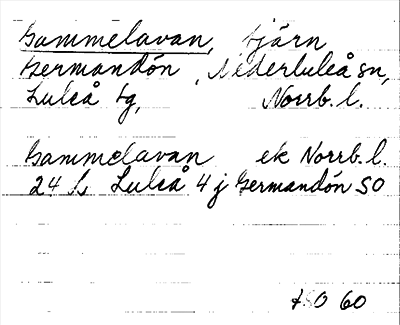 Gammelavan, tjärn
Germandön, Nederluleå sn,
Luleå tg, Norrb. l.
Gammelavan ek Norrb. l.
24 L Luleå 4 j Germandön SO
ÅSO 60